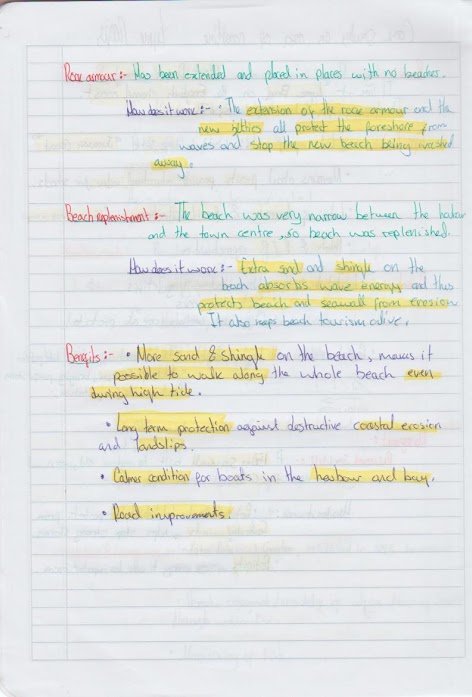 Rock armour:- Has been extended and placed in places with no beaches.
How does it work:- • The extension of the rock armour and the
new jetties all protect the foreshore from
waves and stop the new beach being washed
away.
Beach replenishment:- The beach was very narrow between the habour
and the town centre, so beach was replenished.
How does it work:- Extra snd and shingle on the
beach absorbs wave energy and thus
protects beach and seawall from erosion
It also keeps beach tourism alive.
Benefits:- • More sand & shingle on the beach, makes it
possible to walk along the whole beach even
during high tide.
• Long term protection against destructive coastal erosion
and landslips.
• Calmer condition for boats in the harbour and bay.
• Road improvements.